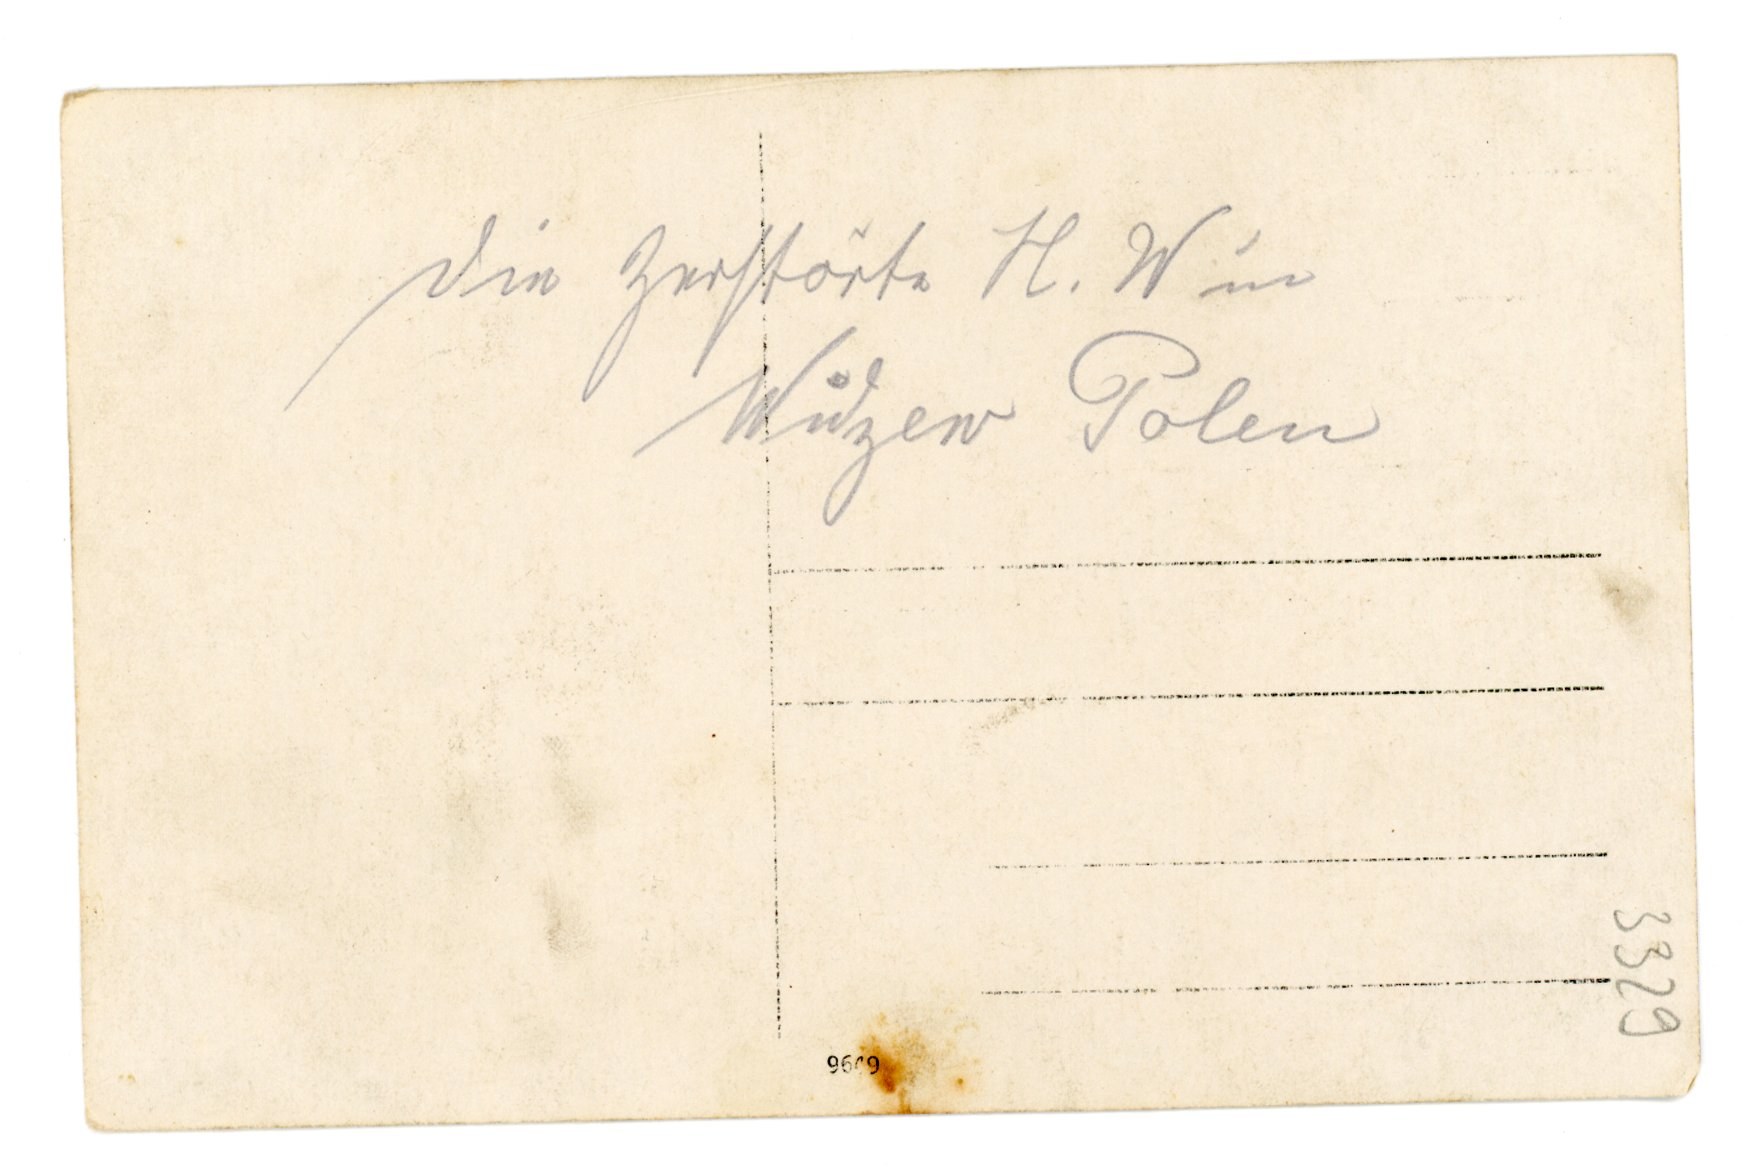 Die Zerstörte H. W in
Widzew Polen
3329
9669